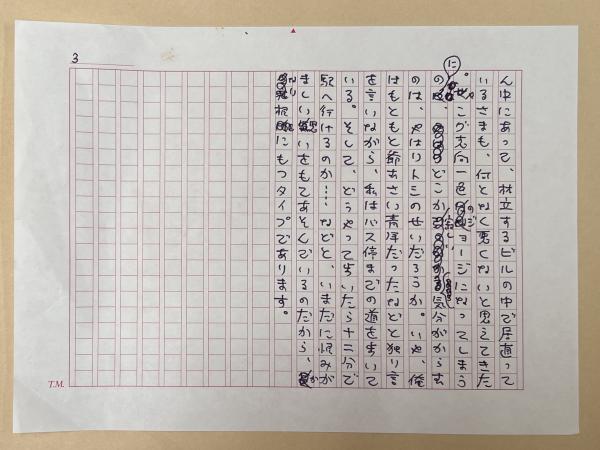 3
ん中にあって、林立するビルの中で居直って
いるさまも、何となく悪くないと思えてきた
。ゼニグチ向一色のジョージになってしまう
のに、どこか寂しい気分がから去
のは、やはりトシのせいだろうか。いや、俺
はもともと爺むさい青年だったなどと独り言
を言いながら、私はバス停までの道を歩いて
いる。そして、どうやって歩いたら十二分で
駅へ行けるのか……などと、いまだに恨みが
ましい思いをもてあそんでいるのだから、か
なり執拗にもつタイプであります。
T.M.